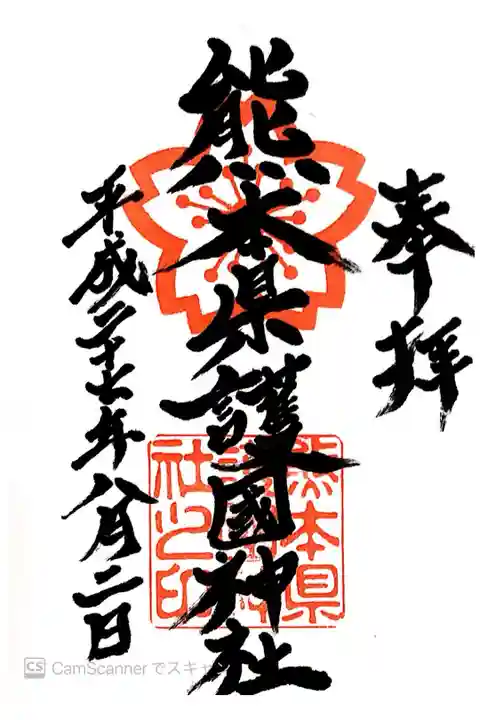 奉拝
熊本県護國神社
平成二十七年八月二日
熊本県
社之印
CS CamScanner でスキャ